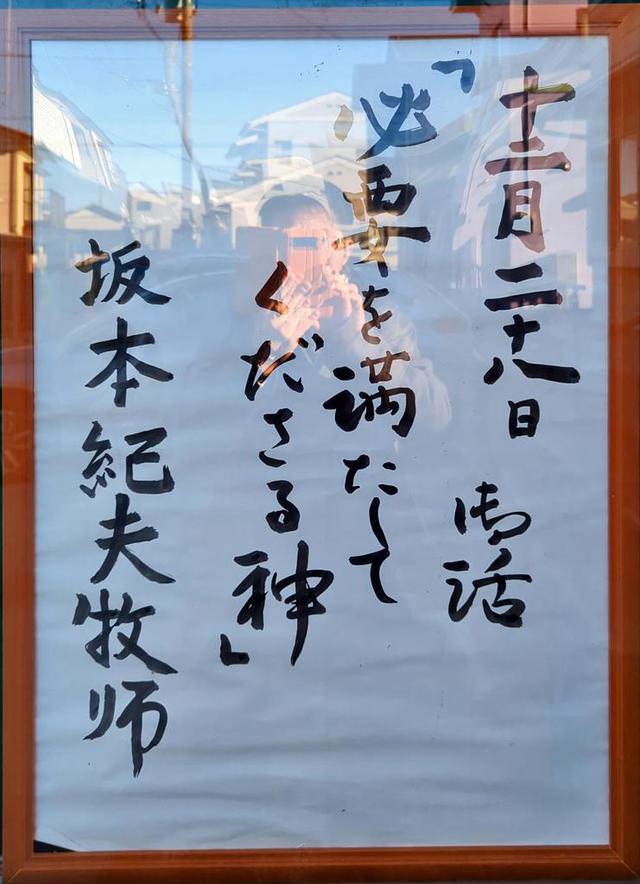 十二月二十八日 御話
「必要を満たして
くださる神」
坂本紀夫牧師